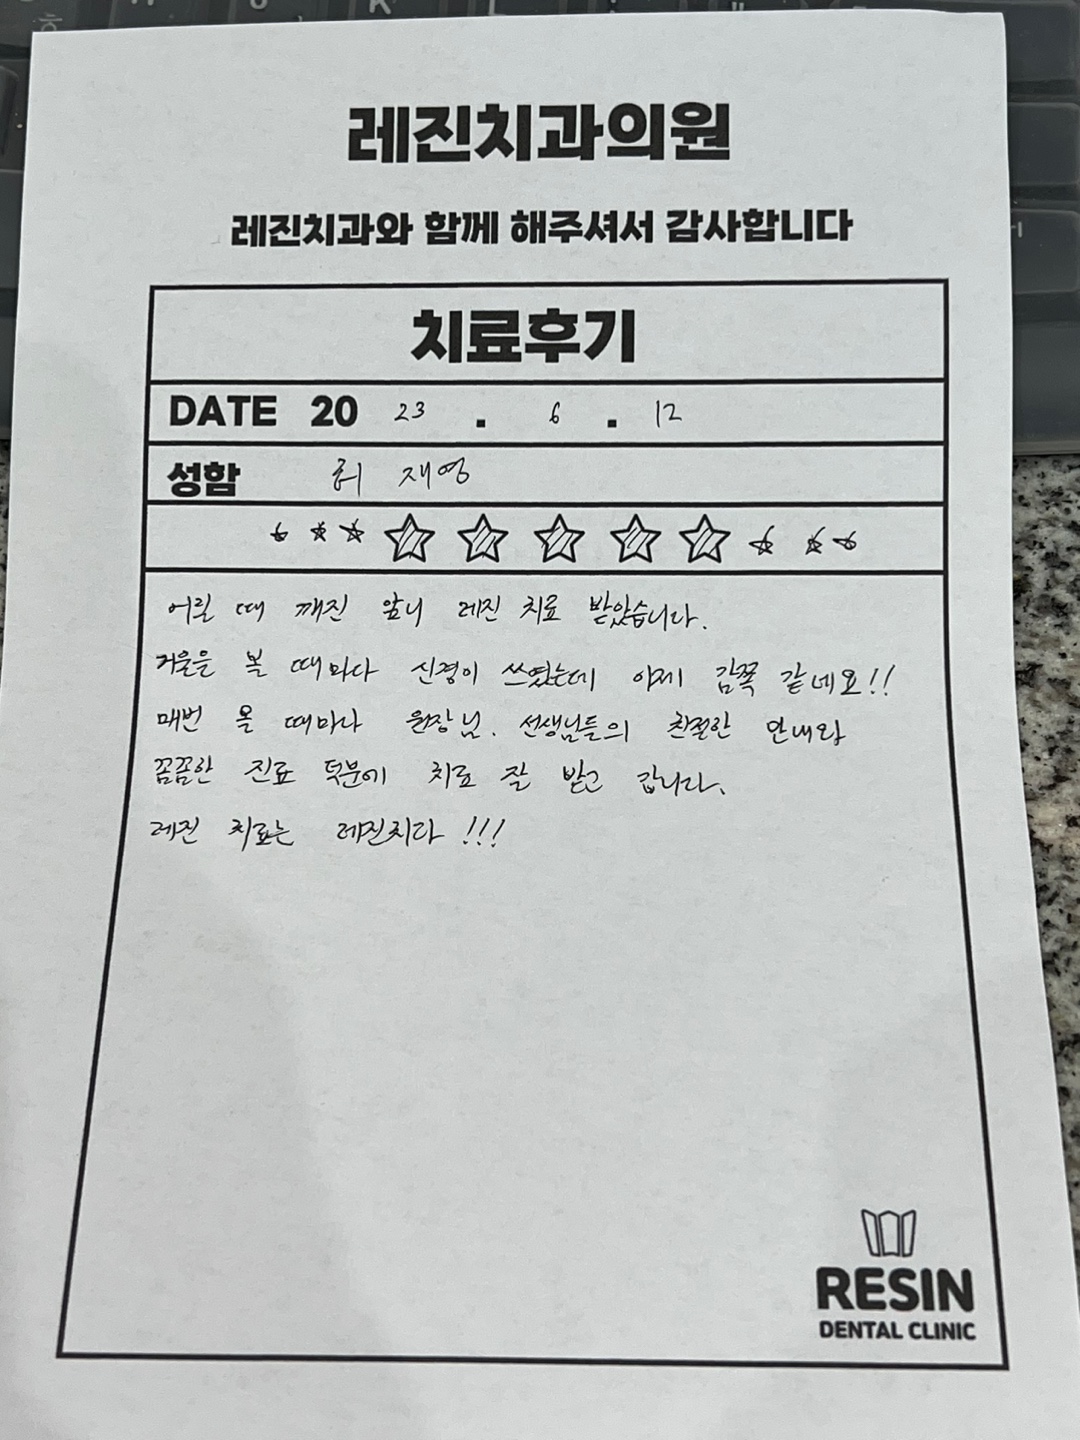 레진치과의원
레진치과와 함께 해주셔서 감사합니다
치료후기
DATE 20 23 . 6 . 12
성함 허 재영
어릴 때 깨진 앞니 레진 치료 받았습니다.
거울을 볼 때마다 신경이 쓰였는데 이제 감쪽 같네요!!
매번 올 때마다 원장님. 선생님들의 친절한 안내와
꼼꼼한 진료 덕분에 치료 잘 받고 갑니다.
레진 치료는 레진치과!!!
RESIN
DENTAL CLINIC